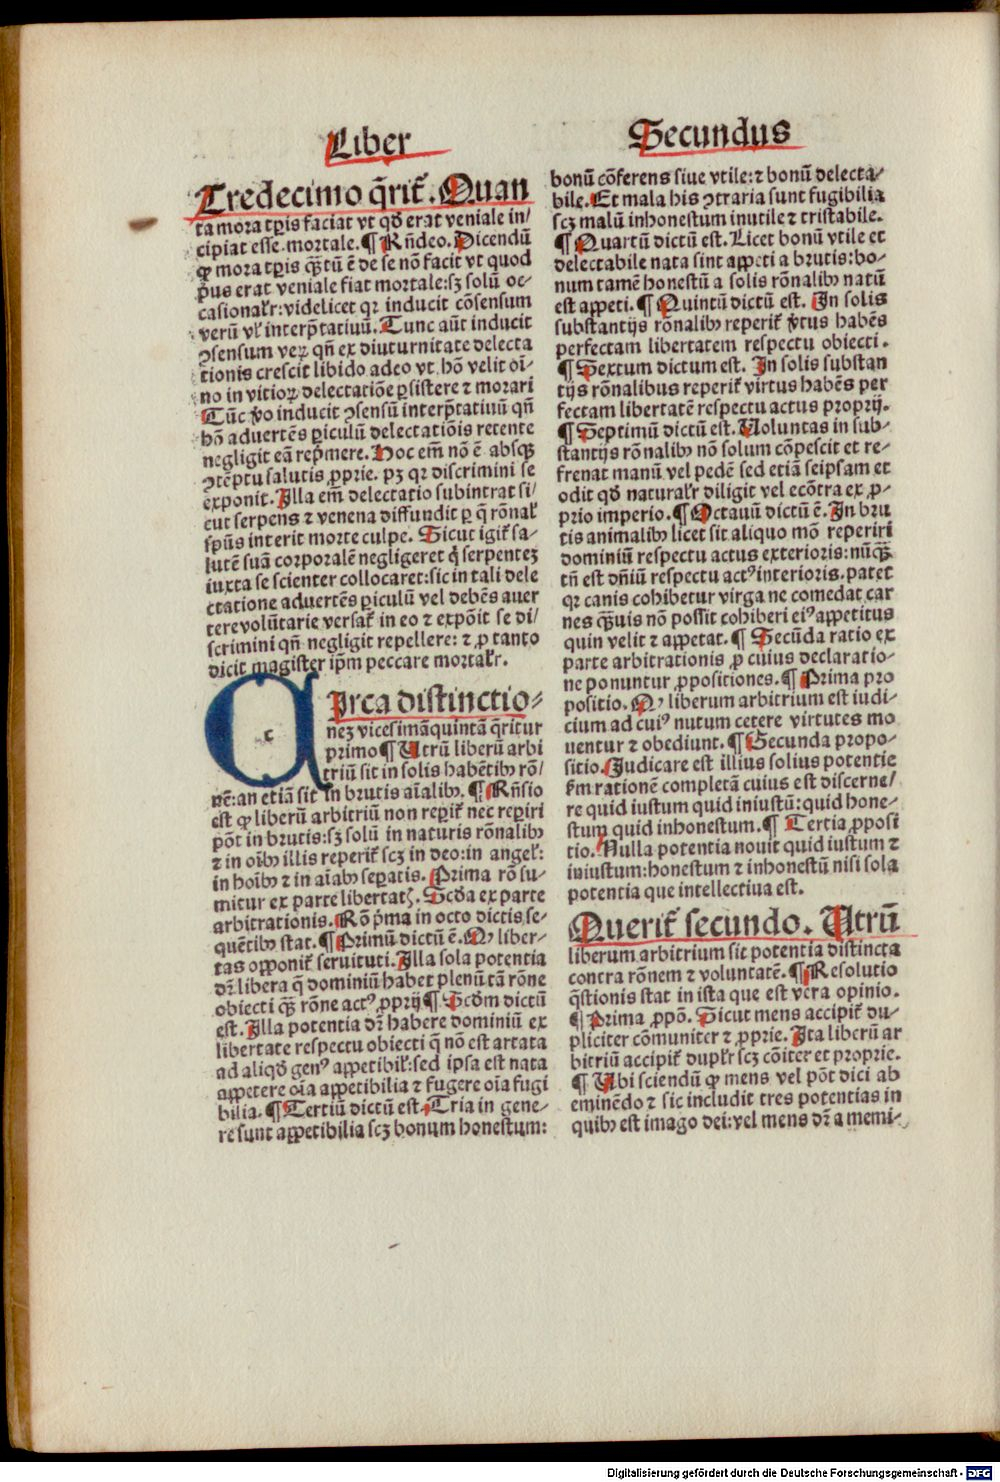 Liber
Secundus
Tredecimo q̄rit᷑. Quan
ta mora tp̄is faciat vt qđ erat veniale in/
cipiat esse mortale. ¶ Rñdeo. Dicendū
ꝙ mora tp̄is q̄ꝫtū ē de se nō facit vt quod
p̄us erat veniale fiat mortale: sꝫ solū oc-
casionalr᷑: videlicet qꝛ inducit cōsensum
verū vl᷑ interp̄tatiuū. Tunc aūt inducit
ꝯsensum veꝝ qñ ex diuturnitate delecta
tionis crescit libido adeo vt hō velit oī-
no in vitioꝝ delectatiōe ꝑsistere ⁊ morari
Tūc v̄o inducit ꝯsensū interp̄tatiuū qñ
hō aduertēs ꝑiculū delectatiōis retente
negligit eā rep̄mere. Hoc em̄ nō ē absqꝫ
ꝯtēptu salutis ꝓprie. pꝫ qꝛ discrimini se
exponit. Illa em̄ delectatio subintrat si/
cut serpens ⁊ venena diffundit ꝑ q̄ rōnal᷑
sp̄us interit morte culpe. Sicut igit᷑ sa-
lutē suā corporalē negligeret q̇ serpenteꝫ
iuxta se scienter collocaret: sic in tali dele
ctatione aduertēs ꝑiculū vel debēs auer
tere volūtarie versat᷑ in eo ⁊ expōit se di/
scrimini qñ negligit repellere: ⁊ ꝓ tanto
dicit magister ip̄m peccare mortalr᷑.
C
c
Irca distinctio-
neꝫ vicesimāquintā q̄ritur
primo ¶ Utrū liberū arbi
triū sit in solis habētibꝫ rō/
nē: an etiā sit in brutis aīalibꝫ. ¶ Rñsio
est ꝙ liberū arbitriū non reꝑit᷑ nec reꝑiri
pōt in brutis: sꝫ solū in naturis rōnalibꝫ
⁊ in oībꝫ illis reperit᷑ scꝫ in deo: in angel᷑:
in hoībꝫ ⁊ in aīabꝫ seꝑatis. Prima rō su-
mitur ex parte libertatꝭ. Scđa ex parte
arbitrationis. Rō p̄ma in octo dictis se-
quētibꝫ stat. ¶ Primū dictū ē. Qꝫ liber-
tas opponit᷑ seruituti. Illa sola potentia
dr̄ libera q̄ dominiū habet plenū tā rōne
obiecti q̄ꝫ rōne actꝰ ꝓprij ¶ Scđm dictū
est. Illa potentia dr̄ habere dominiū ex
libertate respectu obiecti q̄ nō est artata
ad aliqđ genꝰ appetibil᷑: sed ipsa est nata
appetere oīa appetibilia ⁊ fugere oīa fugi
bilia. ¶ Tertiū dictū est. Tria in gene-
re sunt appetibilia scꝫ bonum honestum:
bonū cōferens siue vtile: ⁊ bonū delecta/
bile. Et mala his ꝯtraria sunt fugibilia
scꝫ malū inhonestum inutile ⁊ tristabile.
¶ Quartū dictū est. Licet bonū vtile et
delectabile nata sint appeti a brutis: bo-
num tamē honestū a solis rōnalibꝫ natū
est appeti. ¶ Quintū dictū est. In solis
substantijs rōnalibꝫ reperit᷑ v̄tus habēs
perfectam libertatem respectu obiecti.
¶ Sextum dictum est. In solis substan
tijs rōnalibus reperit᷑ virtus habēs per
fectam libertatē respectu actus proprij.
¶ Septimū dictū est. Uoluntas in sub-
stantijs rōnalibꝫ nō solum cōpescit et re-
frenat manū vel pedē sed etiā seipsam et
odit qđ naturalr᷑ diligit vel ecōtra ex ꝓ-
prio imperio. ¶ Octauū dictū ē. In bru
tis animalibꝫ licet sit aliquo mō reperiri
dominiū respectu actus exterioris: nūq̄ꝫ
tñ est dñiū respectu actꝰ interioris. patet
qꝛ canis cohibetur virga ne comedat car
nes q̄ꝫuis nō possit cohiberi eiꝰ appetitus
quin velit ⁊ appetat. ¶ Secūda ratio ex
parte arbitrationis ꝓ cuius declaratio-
ne ponuntur ꝓpositiones. ¶ Prima pro
positio. Qꝫ liberum arbitrium est iudi-
cium ad cuiꝰ nutum cetere virtutes mo
uentur ⁊ obediunt. ¶ Secunda propo-
sitio. Iudicare est illius solius potentie
ẜm rationē completā cuius est discerne/
re quid iustum quid iniustū: quid hone-
stum quid inhonestum. ¶ Tertia ꝓposi
tio. Nulla potentia nouit quid iustum ⁊
iniustum: honestum ⁊ inhonestū nisi sola
potentia que intellectiua est.
Querit᷑ secundo. Utrū
liberum arbitrium sit potentia distincta
contra rōnem ⁊ voluntatē. ¶ Resolutio
q̄stionis stat in ista que est vera opinio.
¶ Prima ꝓpō. Sicut mens accipit᷑ du-
pliciter cōmuniter ⁊ ꝓprie. Ita liberū ar
bitriū accipit᷑ duplr᷑ scꝫ cōiter et proprie.
¶ Ubi sciendū ꝙ mens vel pōt dici ab
eminēdo ⁊ sic includit tres potentias in
quibꝫ est imago dei: vel mens dr̄ a memi-
Digitalisierung gefördert durch die Deutsche Forschungsgemeinschaft - DFG